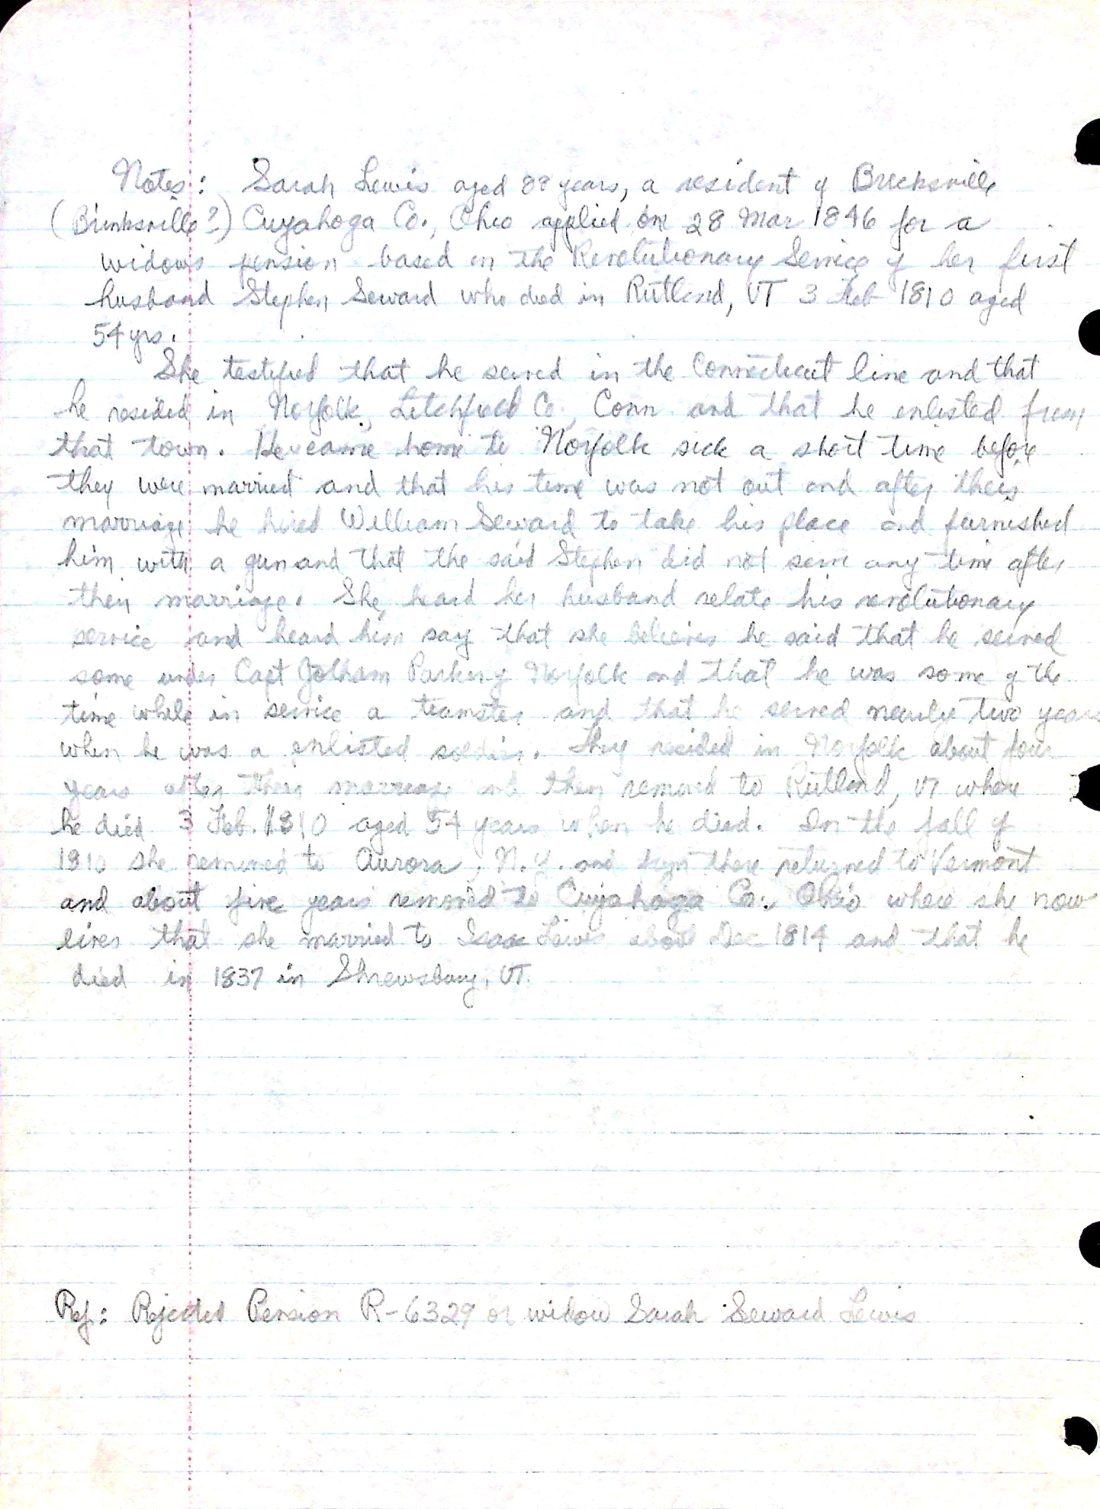 Notes: Sarah Lewis aged years, a resident of Brecksville
(Brinksville?) Cuyahoga Co., Ohio applied on 28 Mar 1846 for a
widows pension based on the Revolutionary Service of her first
husband Stephen Seward who died in Rutland, VT 3 Feb 1810 aged
54 yrs.
She testified that he served in the Connecticut line and that
he resided in Norfolk, Litchfield Co., Conn and that he enlisted from
that town. He came home to Norfolk sick a short time before
they were married and that his time was not out and after their
marriage he hired William Seward to take his place and furnished
him with a gun and that the said Stephen did not serve any time after
their marriage. She heard her husband relate his revolutionary
service and heard him say that she believes he said that he served
some under Capt Jotham Parker of Norfolk and that he was some of the
time while in service a teamster and that he served nearly two years
when he was a enlisted soldier. They resided in Norfolk about four
years after their marriage and then removed to Rutland, VT where
he died 3 Feb. 1810 aged 54 years when he died. In the fall of
1810 she removed to Aurora, N.Y. and from there returned to Vermont
and about five years removed to Cuyahoga Co., Ohio where she now
lives that she married to Isaac Lewis about Dec 1814 and that he
died in 1837 in Shrewsbury, VT.
Ref: Rejected Pension R-6329 or widow Sarah Seward Lewis